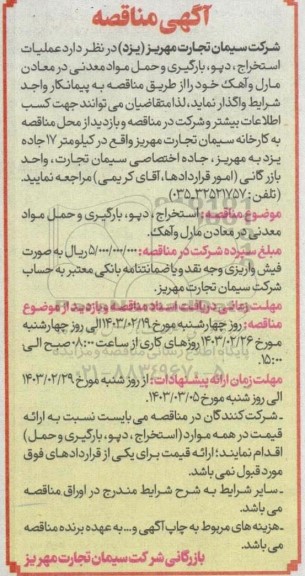 آگهی مناقصه
شرکت سیمان تجارت مهریز (یزد) در نظر دارد عملیات
استخراج، دپو، بارگیری و حمل مواد معدنی در معادن
مارل و آهک خود را از طریق مناقصه به پیمانکار واجد
شرایط واگذار نماید، لذا متقاضیان می توانند جهت کسب
اطلاعات بیشتر و شرکت در مناقصه و بازدید از محل مناقصه
به کارخانه سیمان تجارت مهریز واقع در کیلومتر ۱۷ جاده
یزد به مهریز، جاده اختصاصی سیمان تجارت، واحد
بازرگانی (امور قراردادها، آقای کریمی) مراجعه نمایید.
(تلفن: ۳۲۵۲۱۷۵۷-۰۳۵)
موضوع مناقصه: استخراج، دپو، بارگیری و حمل مواد
معدنی در معادن مارل و آهک.
مبلغ سپرده شرکت در مناقصه: ۵/۰۰۰/۰۰۰/۰۰۰ ریال به صورت
فیش واریزی وجه نقد و یا ضمانتنامه بانکی معتبر به حساب
شرکت سیمان تجارت مهریز.
مهلت زمانی دریافت اسناد مناقصه و بازدید از موضوع
مناقصه: روز چهارشنبه مورخ ۱۴۰۳/۰۲/۱۹ الی روز چهارشنبه
مورخ ۱۴۰۳/۰۲/۲۶ روزهای کاری از ساعت ۰۸:۰۰ صبح الی
۱۵:۰۰
پایگاه اطلاع رسانی مناقصه و مزایده
۰۲۱-۸۸۳۴۹۶۷۰-۵
مهلت زمان ارائه پیشنهادات: از روز شنبه مورخ ۱۴۰۳/۰۲/۲۹
الی روز شنبه مورخ ۱۴۰۳/۰۳/۰۵.
ـ شرکت کنندگان در مناقصه می بایست نسبت به ارائه
قیمت در همه موارد (استخراج، دپو، بارگیری و حمل)
اقدام نمایند؛ ارائه قیمت برای یکی از قراردادهای فوق
مورد قبول نمی باشد.
ـ سایر شرایط به شرح شرایط مندرج در اوراق مناقصه
می باشد.
ـ هزینه های مربوط به چاپ آگهی و... به عهده برنده مناقصه
می باشد.
بازرگانی شرکت سیمان تجارت مهریز